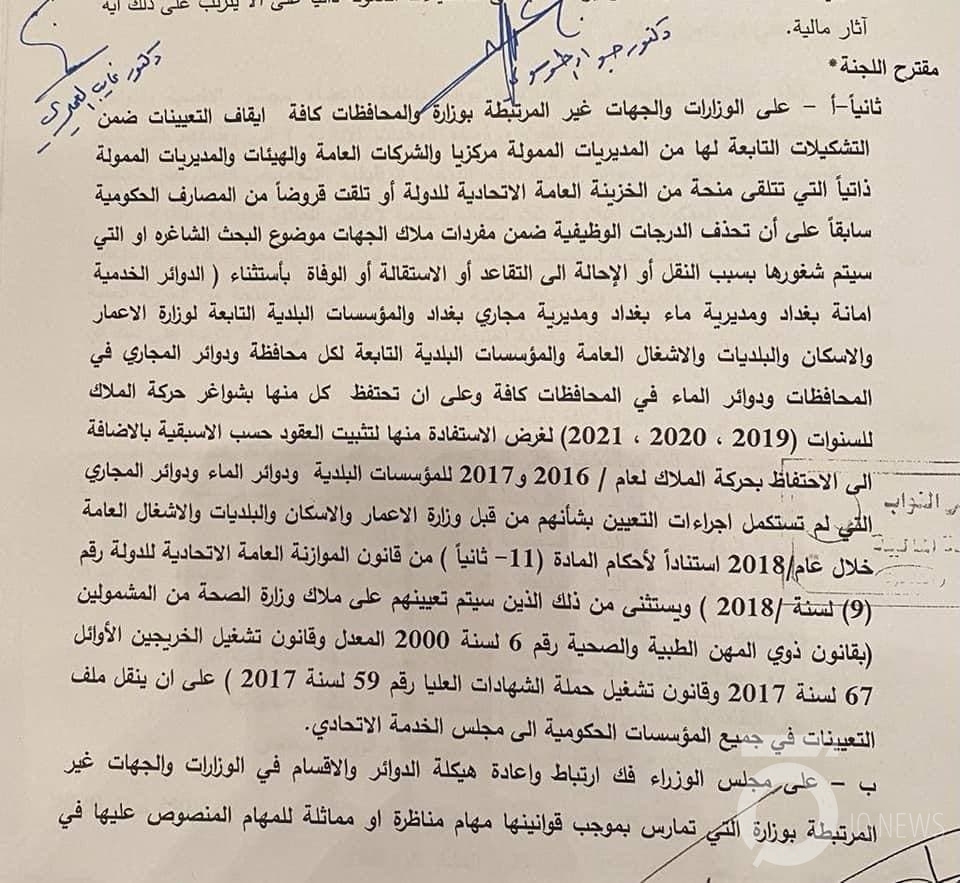 على ألا يترتب على ذلك أية
آثار مالية.
مقترح اللجنة*
ثانياً-أ – على الوزارات والجهات غير المرتبطة بوزارة والمحافظات كافة ايقاف التعيينات ضمن
التشكيلات التابعة لها من المديريات الممولة مركزيا والشركات العامة والهيئات والمديريات الممولة
ذاتياً التي تتلقى منحة من الخزينة العامة الاتحادية للدولة أو تلقت قروضاً من المصارف الحكومية
سابقاً على أن تحذف الدرجات الوظيفية ضمن مفردات ملاك الجهات موضوع البحث الشاغره او التي
سيتم شغورها بسبب النقل أو الإحالة الى التقاعد أو الاستقالة أو الوفاة بأستثناء ( الدوائر الخدمية
امانة بغداد ومديرية ماء بغداد ومديرية مجاري بغداد والمؤسسات البلدية التابعة لوزارة الاعمار
والاسكان والبلديات والاشغال العامة والمؤسسات البلدية التابعة لكل محافظة ودوائر المجاري في
المحافظات ودوائر الماء في المحافظات كافة وعلى ان تحتفظ كل منها بشواغر حركة الملاك
للسنوات (2019 ، 2020 ، 2021) لغرض الاستفادة منها لتثبيت العقود حسب الاسبقية بالاضافة
الى الاحتفاظ بحركة الملاك لعام / 2016 و2017 للمؤسسات البلدية ودوائر الماء ودوائر المجاري
التي لم تستكمل اجراءات التعيين بشأنهم من قبل وزارة الاعمار والاسكان والبلديات والاشغال العامة
خلال عام/2018 استناداً لأحكام المادة (11– ثانياً ) من قانون الموازنة العامة الاتحادية للدولة رقم
(9) لسنة /2018 ) ويستثنى من ذلك الذين سيتم تعيينهم على ملاك وزارة الصحة من المشمولين
(بقانون ذوي المهن الطبية والصحية رقم 6 لسنة 2000 المعدل وقانون تشغيل الخريجين الأوائل
67 لسنة 2017 وقانون تشغيل حملة الشهادات العليا رقم 59 لسنة 2017 ) على ان ينقل ملف
التعيينات في جميع المؤسسات الحكومية الى مجلس الخدمة الاتحادي.
ب – على مجلس الوزراء فك ارتباط واعادة هيكلة الدوائر والاقسام في الوزارات والجهات غير
المرتبطة بوزارة التي تمارس بموجب قوانينها مهام مناظرة او مماثلة للمهام المنصوص عليها في
النواب
المالية
NEWS